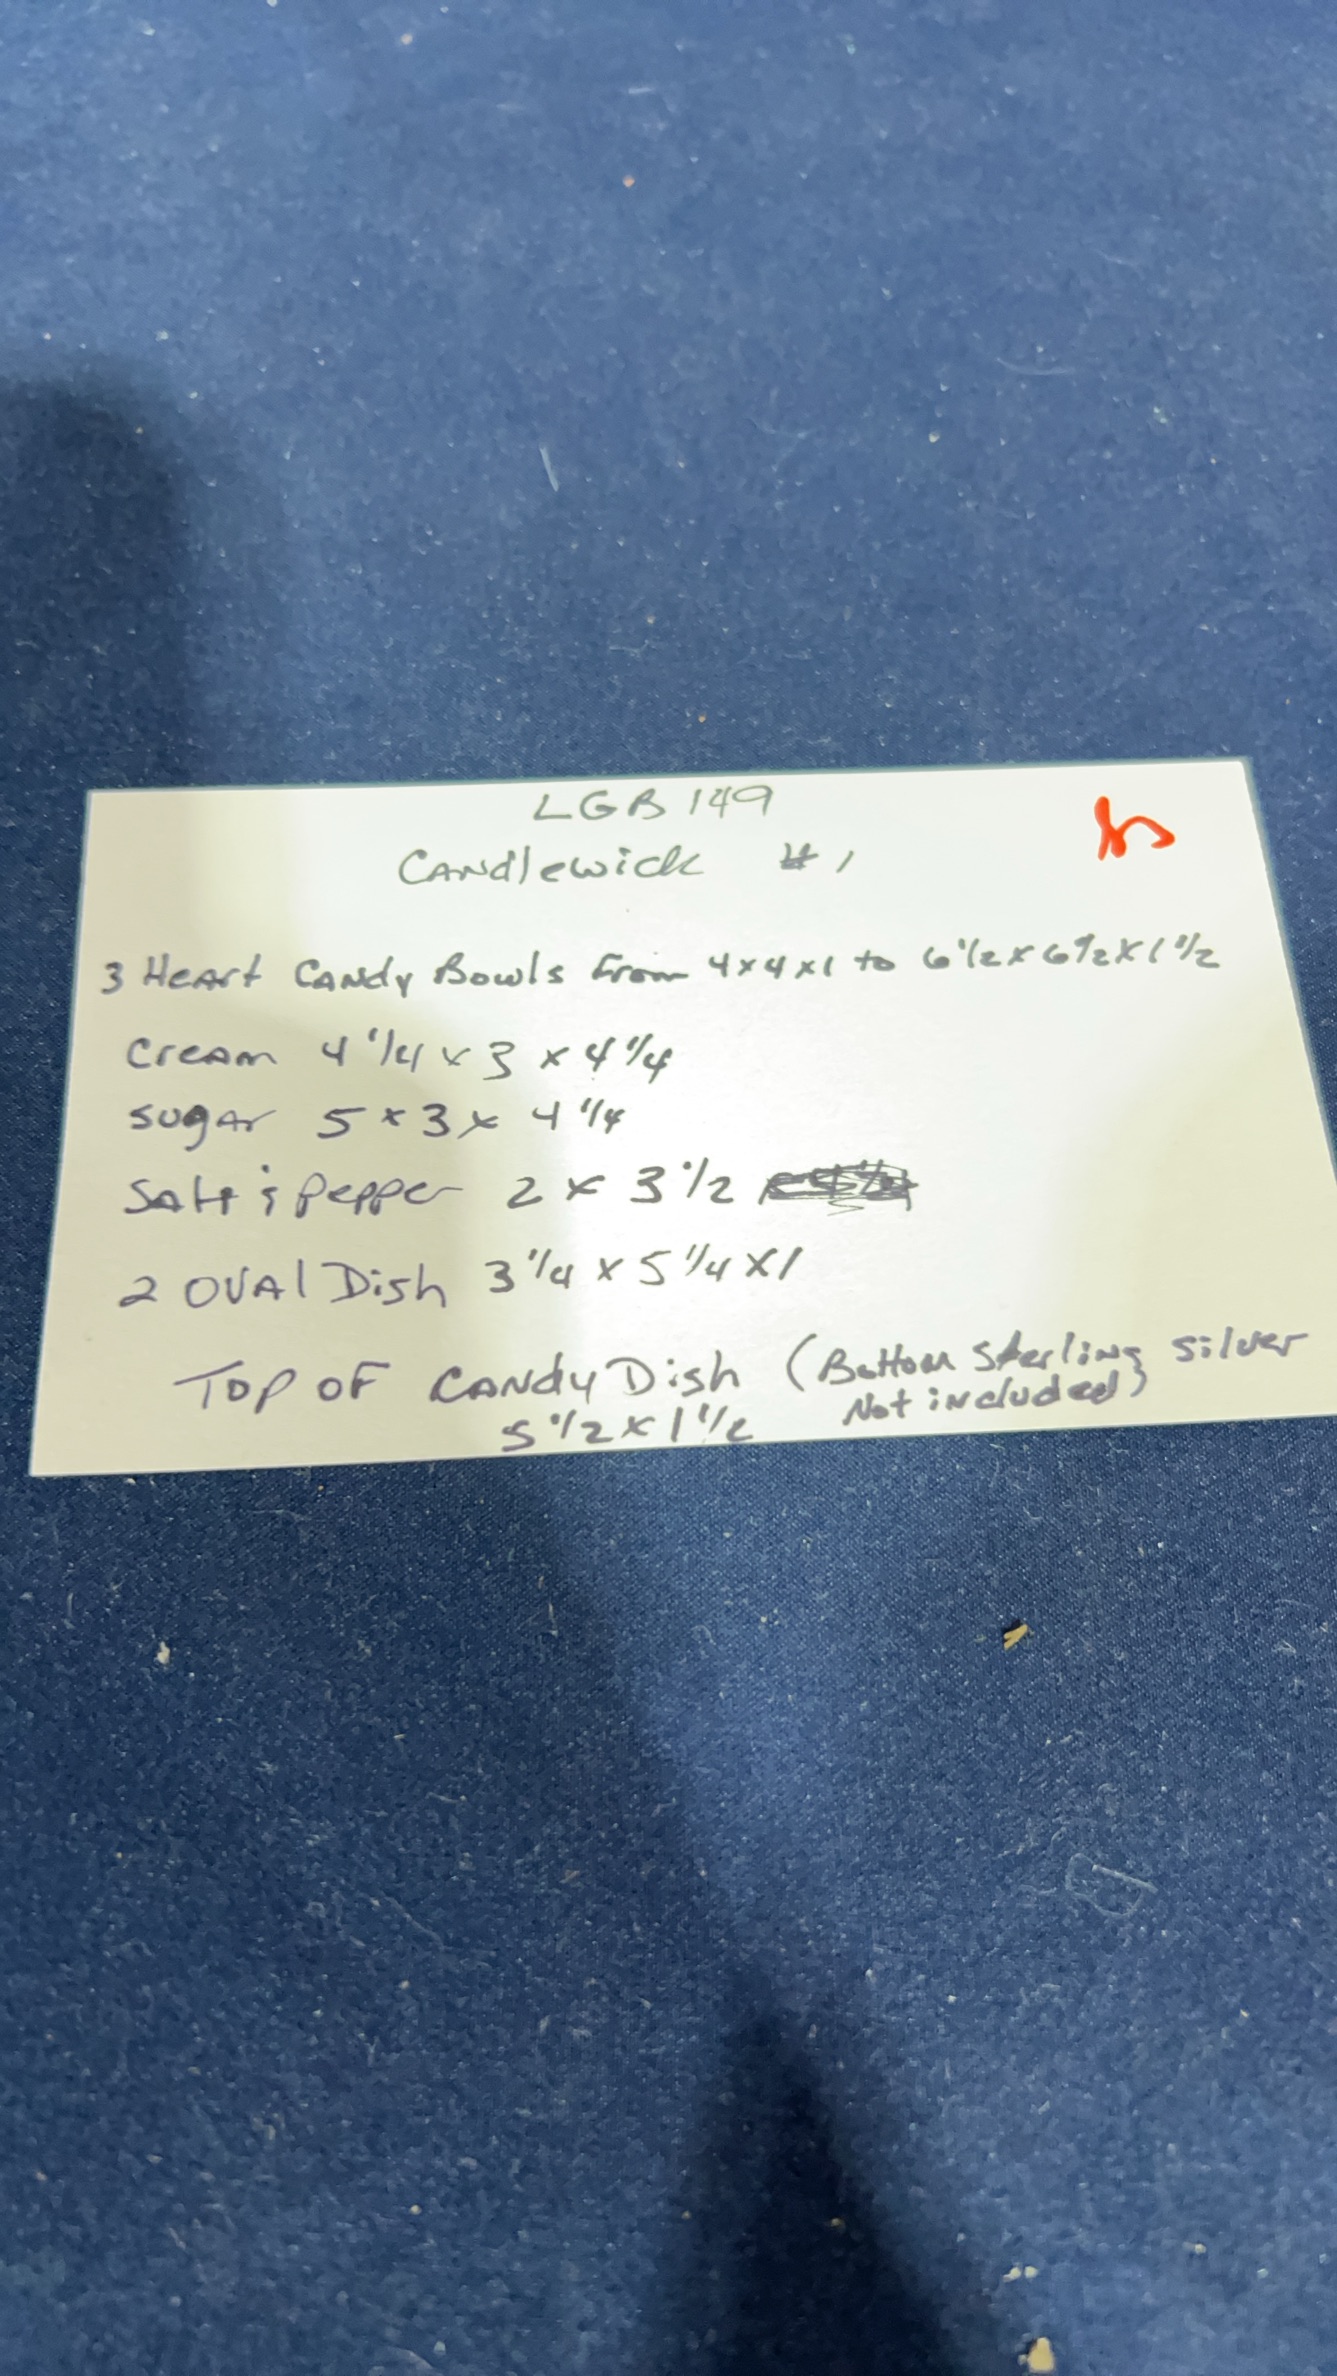 LGB 149
Candlewick # 1
3 Heart Candy Bowls From 4x4x1 to 6 1/2 x 6 1/2 x 1 1/2
Cream 4 1/4 x 3 x 4 1/4
Sugar 5 x 3 x 4 1/4
Salt & Pepper 2 x 3 1/2
2 OVAl Dish 3 1/4 x 5 1/4 x 1
Top OF Candy Dish (Bottom Sterling Silver
5 1/2 x 1 1/2 Not included)